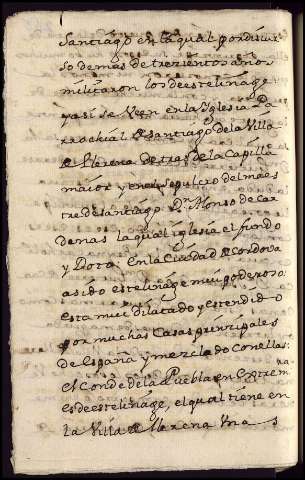 Santiago en la qual por discur
so de mas de trezientos años
militaron los de este linage
y asi se veen en la Yglesia Pa
rrochial de Santiago de la Villa
de Llerena detras de la Capilla
maior y en el sepulcro del maes
tre de Santiago Dn. Alonso de Car
denas la qual iglesia el fundo
y Doto. En la Ciudad de Cordova
a sido este linage mui poderoso
esta mui dilatado y estendido
por muchas Casas prinzipales
de España y mezclado con ellas:
el Conde de la Puebla en Extrem.
es de este linage, el qual tiene en
la Villa de Llerena una s